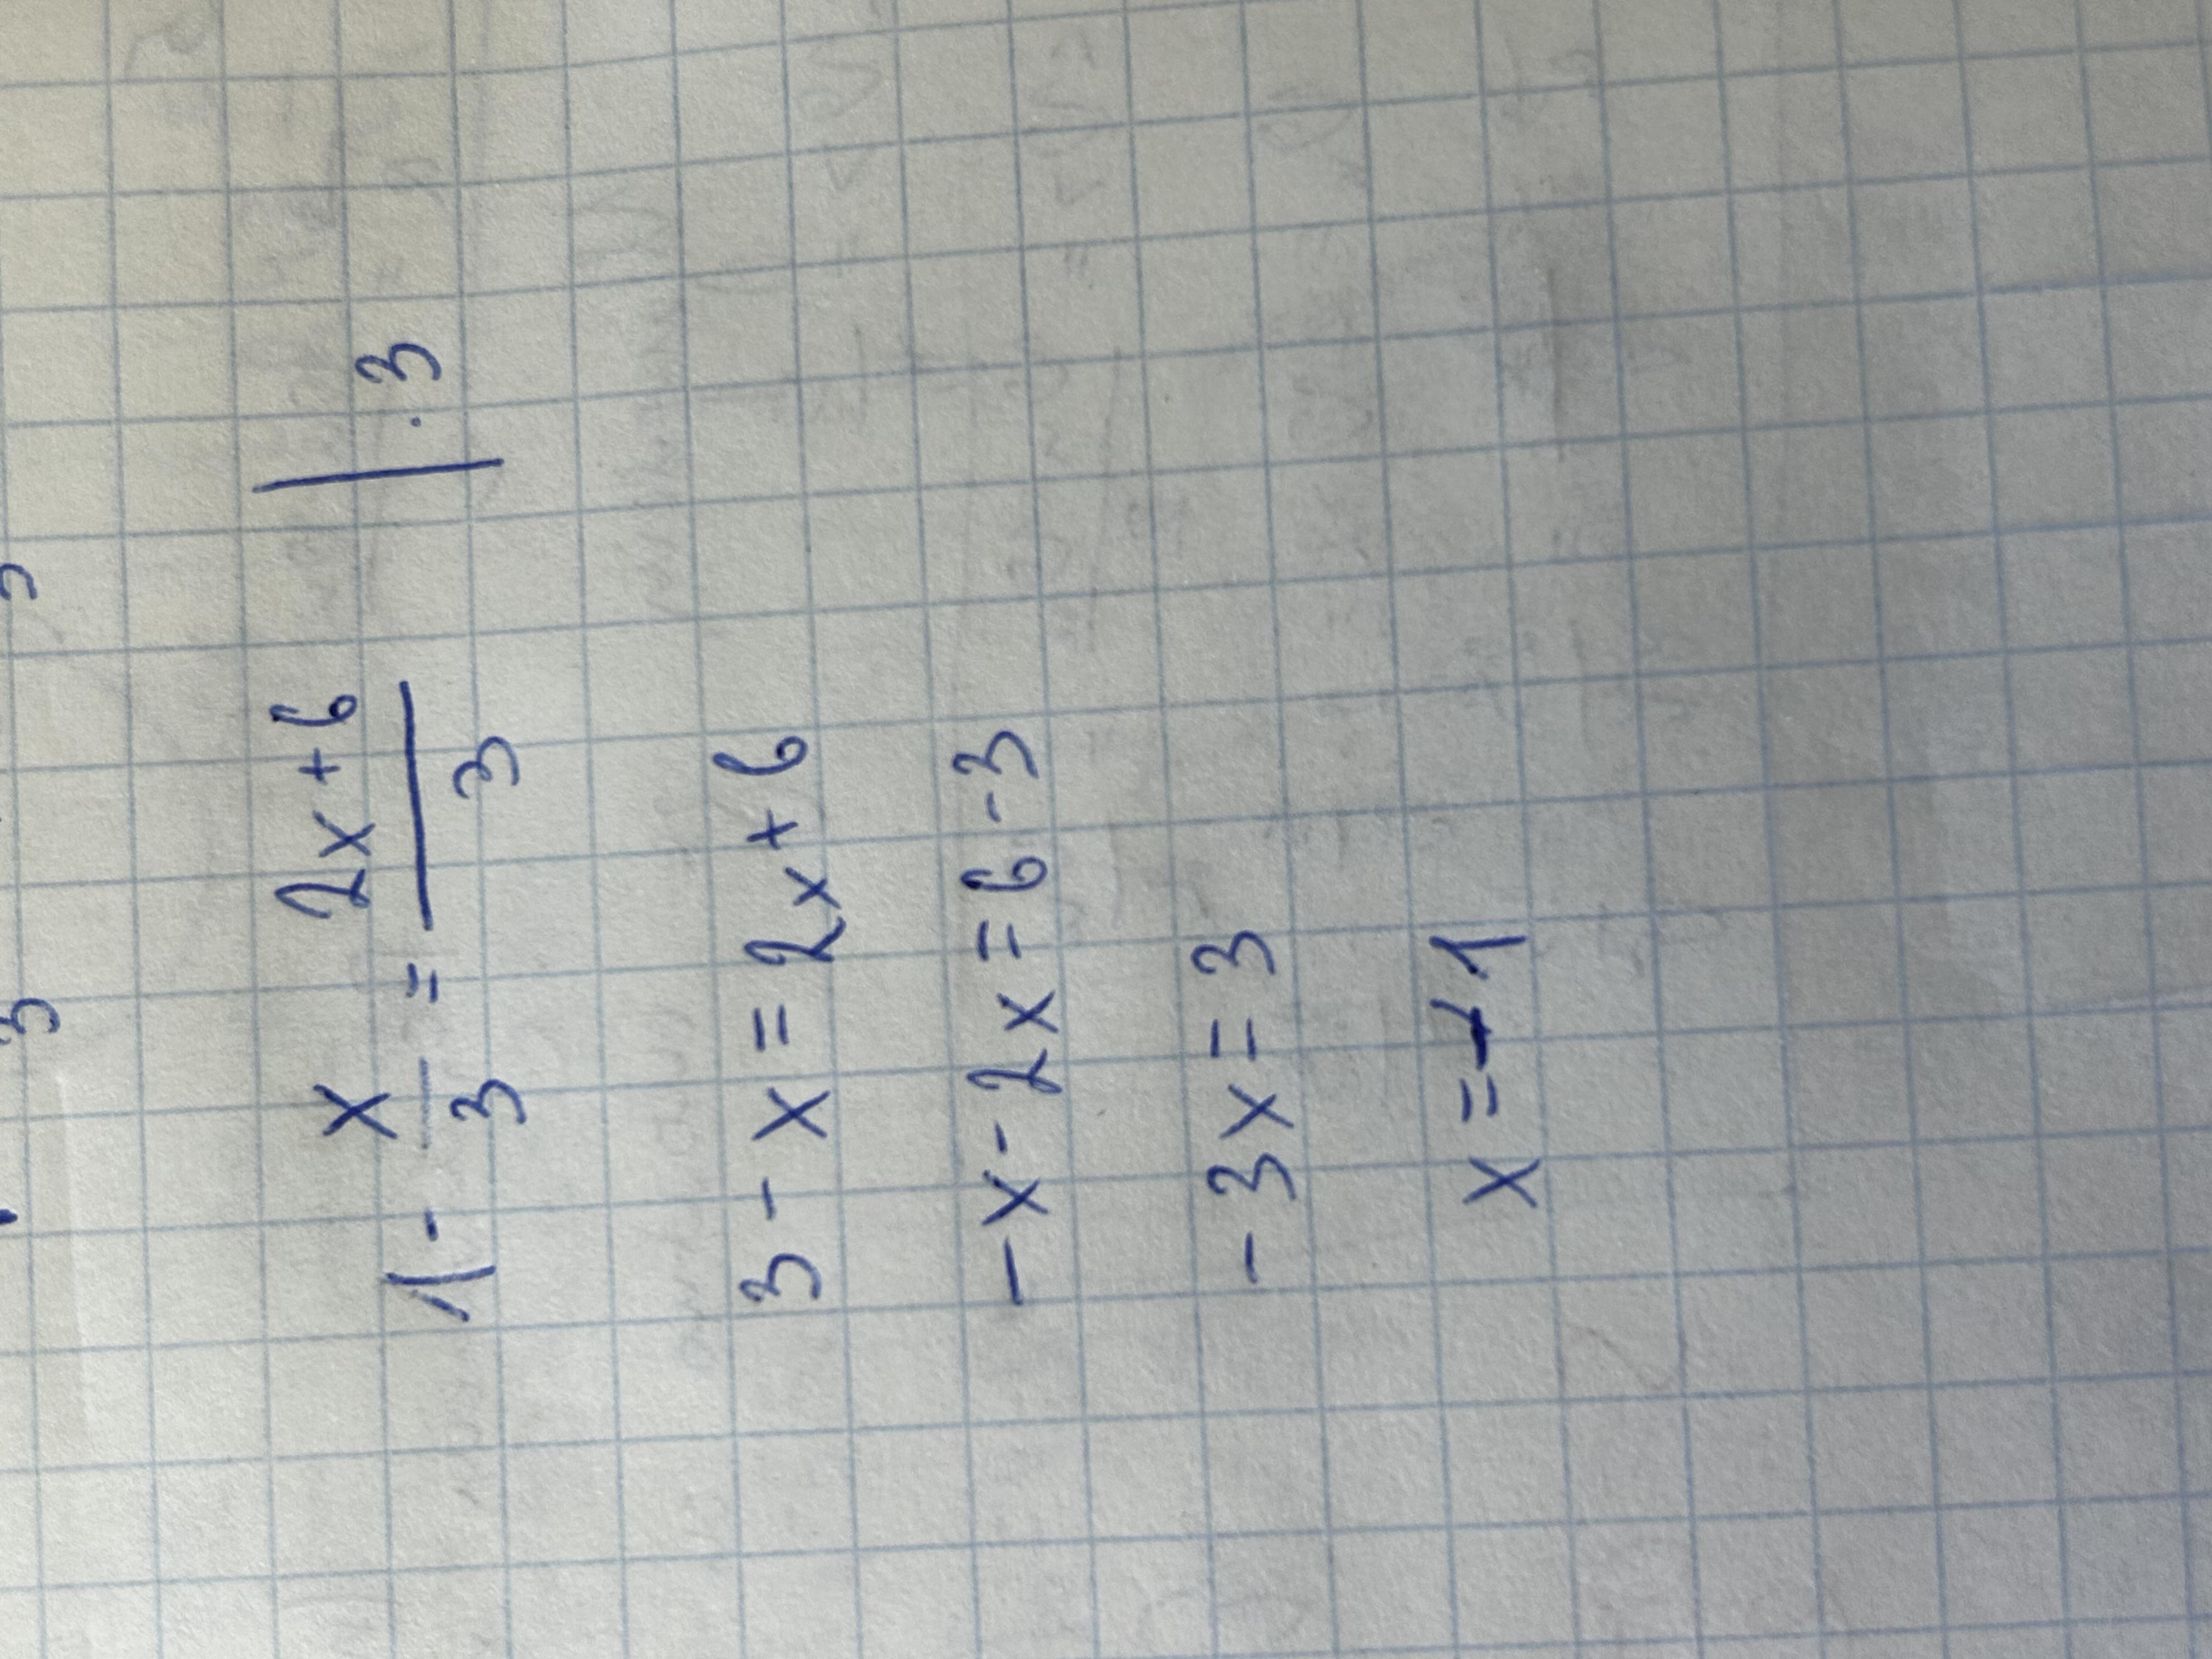 1 - x/3 = (2x+6)/3 | · 3
3 - x = 2x + 6
-x - 2x = 6 - 3
-3x = 3
x = -1